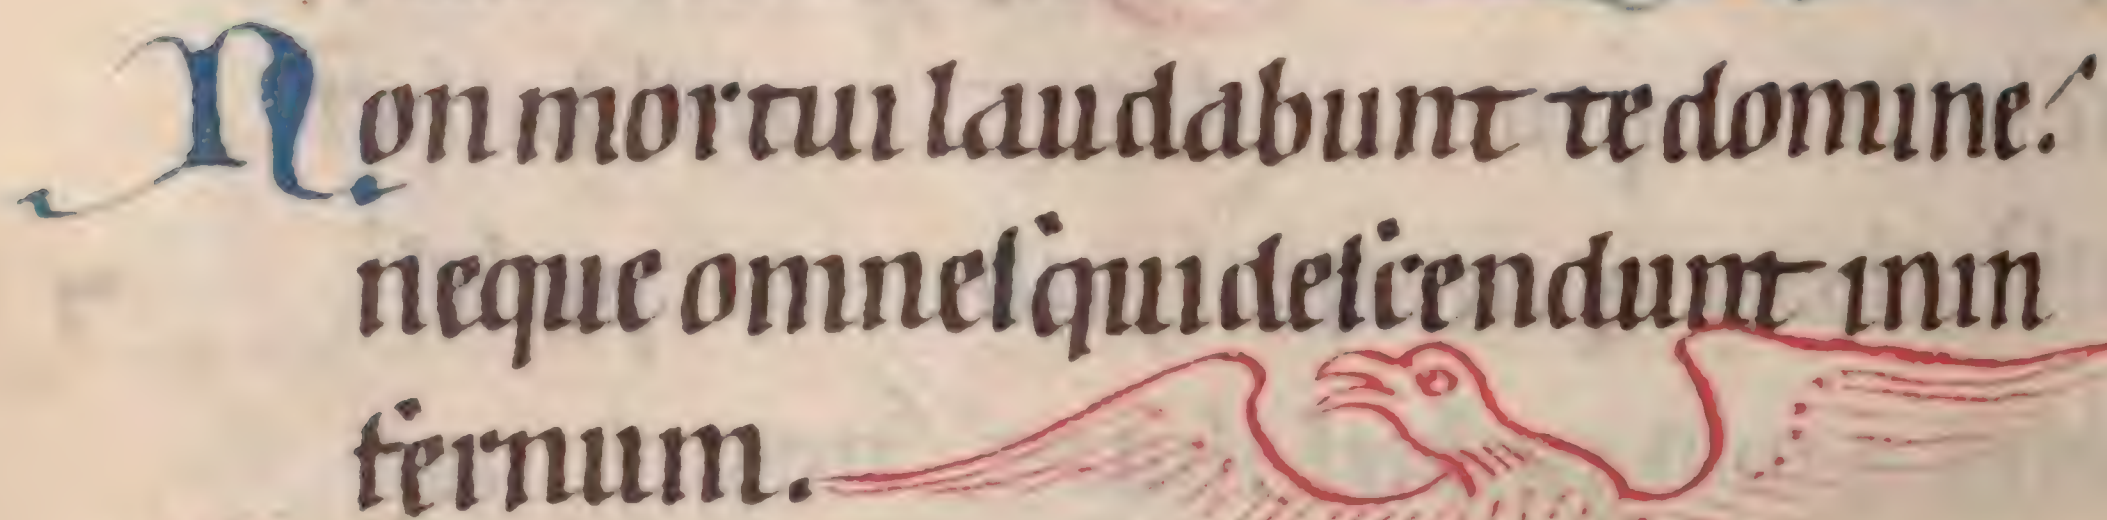 Non mortui laudabunt te domine:
neque omneſ qui deſcendunt in in
fernum.